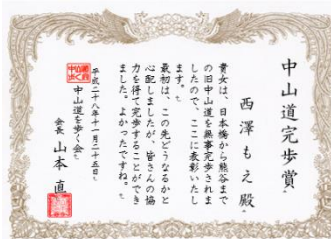 中山道完歩賞
西澤もえ殿
貴女は、日本橋から熊谷まで
の旧中山道を無事完歩されま
したので、ここに表彰いたし
ます。
最初は、この先どうなるかと
心配しましたが 皆さんの協
力を得て完歩することができ
ました。よかったですね。
平成二十八年十一月二十五日
中山道を歩く会
会長 山本 直